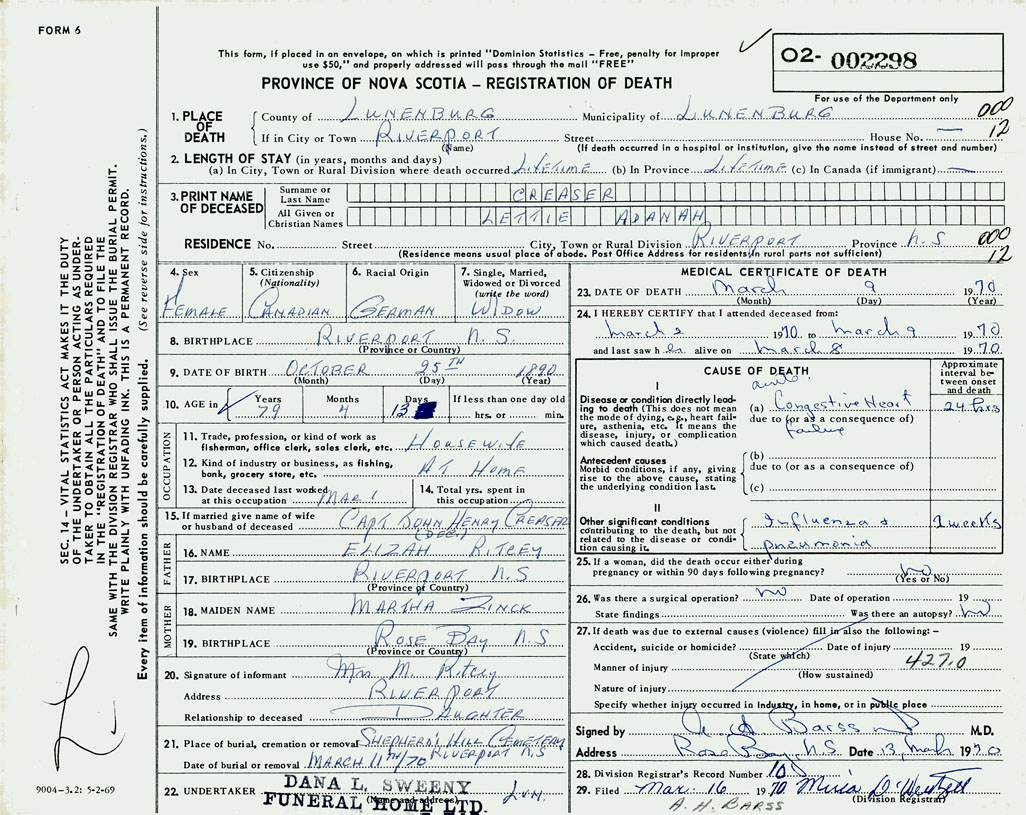 FORM 6
This form, if placed in an envelope, on which is printed "Dominion Statistics – Free, penalty for improper
use $50," and properly addressed will pass through the mail "FREE"
O2- 002298
PROVINCE OF NOVA SCOTIA – REGISTRATION OF DEATH
For use of the Department only
SEC. 14 – VITAL STATISTICS ACT MAKES IT THE DUTY
OF THE UNDERTAKER OR PERSON ACTING AS UNDER-
TAKER TO OBTAIN ALL THE PARTICULARS REQUIRED
IN THE "REGISTRATION OF DEATH" AND TO FILE THE
SAME WITH THE DIVISION REGISTRAR WHO SHALL ISSUE THE BURIAL PERMIT.
WRITE PLAINLY WITH UNFADING INK. THIS IS A PERMANENT RECORD.
Every item of information should be carefully supplied. (See reverse side for instructions.)
1. PLACE OF DEATH
County of LUNENBURG Municipality of LUNENBURG 000
If in City or Town RIVERPORT Street House No. — 12
(Name) (If death occurred in a hospital or institution, give the name instead of street and number)
2. LENGTH OF STAY (in years, months and days)
(a) In City, Town or Rural Division where death occurred LIFETIME (b) In Province LIFETIME (c) In Canada (if immigrant) —
3. PRINT NAME OF DECEASED
Surname or Last Name CREASER
All Given or Christian Names LETTIE ADANAH
RESIDENCE No. Street City, Town or Rural Division RIVERPORT Province N.S 000
(Residence means usual place of abode. Post Office Address for residents in rural parts not sufficient) 12
4. Sex
FEMALE
5. Citizenship
(Nationality)
CANADIAN
6. Racial Origin
GERMAN
7. Single, Married,
Widowed or Divorced
(write the word)
WIDOW
8. BIRTHPLACE RIVERPORT N.S.
(Province or Country)
9. DATE OF BIRTH OCTOBER 25TH 1890
(Month) (Day) (Year)
10. AGE in Years Months Days If less than one day old
79 4 13 hrs. or min.
OCCUPATION
11. Trade, profession, or kind of work as
fisherman, office clerk, sales clerk, etc. HOUSEWIFE
12. Kind of industry or business, as fishing,
bank, grocery store, etc. AT HOME
13. Date deceased last worked
at this occupation MAR 1
14. Total yrs. spent in
this occupation
15. If married give name of wife
or husband of deceased CAPT. JOHN HENRY CREASER
(DEC.)
FATHER
16. NAME ELIZAH RITCEY
17. BIRTHPLACE RIVERPORT N.S
(Province or Country)
MOTHER
18. MAIDEN NAME MARTHA ZINCK
19. BIRTHPLACE ROSE BAY N.S
(Province or Country)
20. Signature of informant Mrs M. Ritcey
Address RIVERPORT
Relationship to deceased DAUGHTER
21. Place of burial, cremation or removal SHEPHERD'S HILL CEMETERY
RIVERPORT N.S
Date of burial or removal MARCH 11TH/70
22. UNDERTAKER DANA L. SWEENY
(Name and address)
FUNERAL HOME LTD. LUN.
9004-3.2: 5-2-69
MEDICAL CERTIFICATE OF DEATH
23. DATE OF DEATH March 9 1970
(Month) (Day) (Year)
24. I HEREBY CERTIFY that I attended deceased from:
march 2 1970 to march 9 1970
and last saw her alive on march 8 1970
CAUSE OF DEATH
Approximate
interval be-
tween onset
and death
I
Disease or condition directly lead-
ing to death (This does not mean
the mode of dying, e.g., heart fail-
ure, asthenia, etc. It means the
disease, injury, or complication
which caused death.)
acute
(a) Congestive Heart 24 hrs
due to (or as a consequence of)
failure
Antecedent causes
Morbid conditions, if any, giving
rise to the above cause, stating
the underlying condition last.
(b)
due to (or as a consequence of)
(c)
II
Other significant conditions
contributing to the death, but not
related to the disease or condi-
tion causing it.
Influenza & 2 weeks
pneumonia
25. If a woman, did the death occur either during
pregnancy or within 90 days following pregnancy? no
(Yes or No)
26. Was there a surgical operation? no Date of operation 19
State findings Was there an autopsy? no
27. If death was due to external causes (violence) fill in also the following: –
Accident, suicide or homicide? Date of injury 19
(State which)
Manner of injury 427.0
(How sustained)
Nature of injury
Specify whether injury occurred in Industry, in home, or in public place
Signed by Barss M.D.
Address Rose Bay, N.S. Date 13 March 1970
28. Division Registrar's Record Number 10
29. Filed Mar. 16 1970
(Division Registrar)
A. H. BARSS